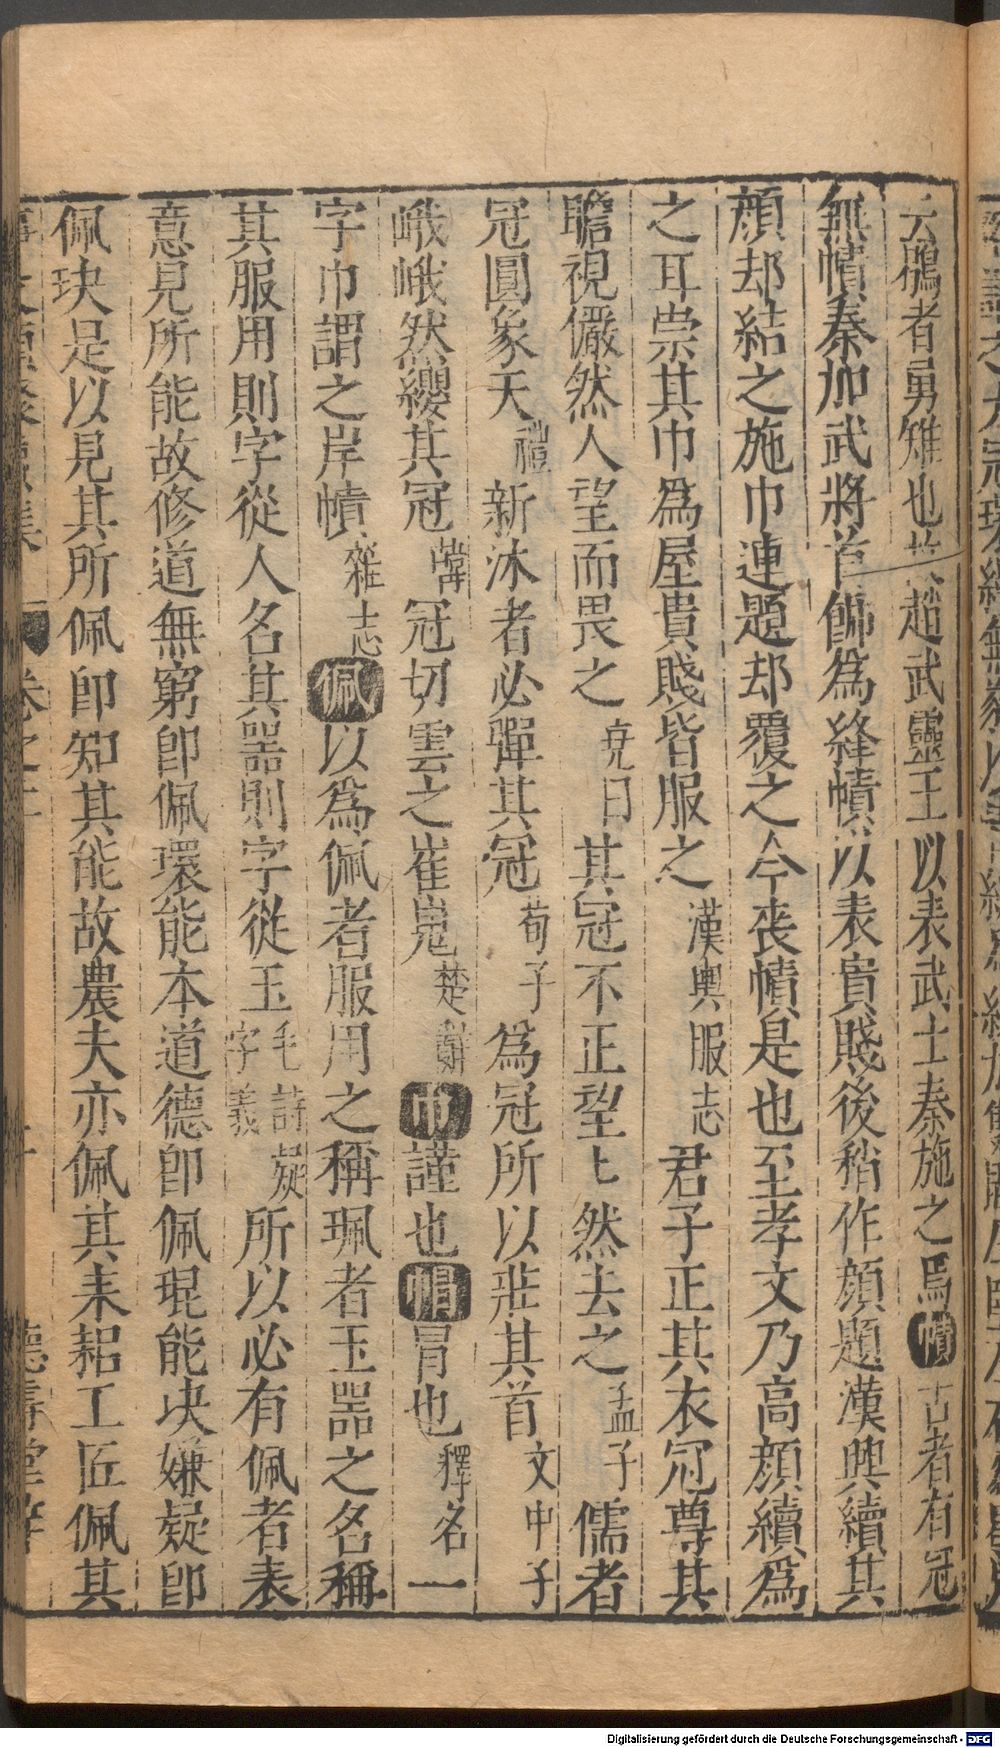 云鶡者勇雉也故趙武靈王以表武士秦施之焉幘古者有冠
無幘秦加武將首飾爲絳幘以表貴賤後稍作顔題漢興續其
顔却結之施巾連題却覆之今䘮幘是也至孝文乃高顔續爲
之耳崇其巾爲屋貴賤皆服之漢輿服志君子正其衣冠尊其
瞻視儼然人望而畏之尭曰其冠不正望〻然去之孟子儒者
冠圓象天禮新沐者必彈其冠荀子爲冠所以莊其首文中子
峨峨然纓其冠韓冠切雲之崔嵬楚辭巾謹也帽冐也釋名一
字巾謂之岸幘雜志佩以爲佩者服用之稱珮者玉噐之名稱
其服用則字從人名其噐則字從玉毛詩字義疑所以必有佩者表
意見所能故修道無窮卽佩環能本道德卽佩琨能决嫌疑卽
佩玦是以見其所佩卽知其能故農夫亦佩其耒耜工匠佩其
卷之二 德壽堂梓
Digitalisierung gefördert durch die Deutsche Forschungsgemeinschaft - DFG